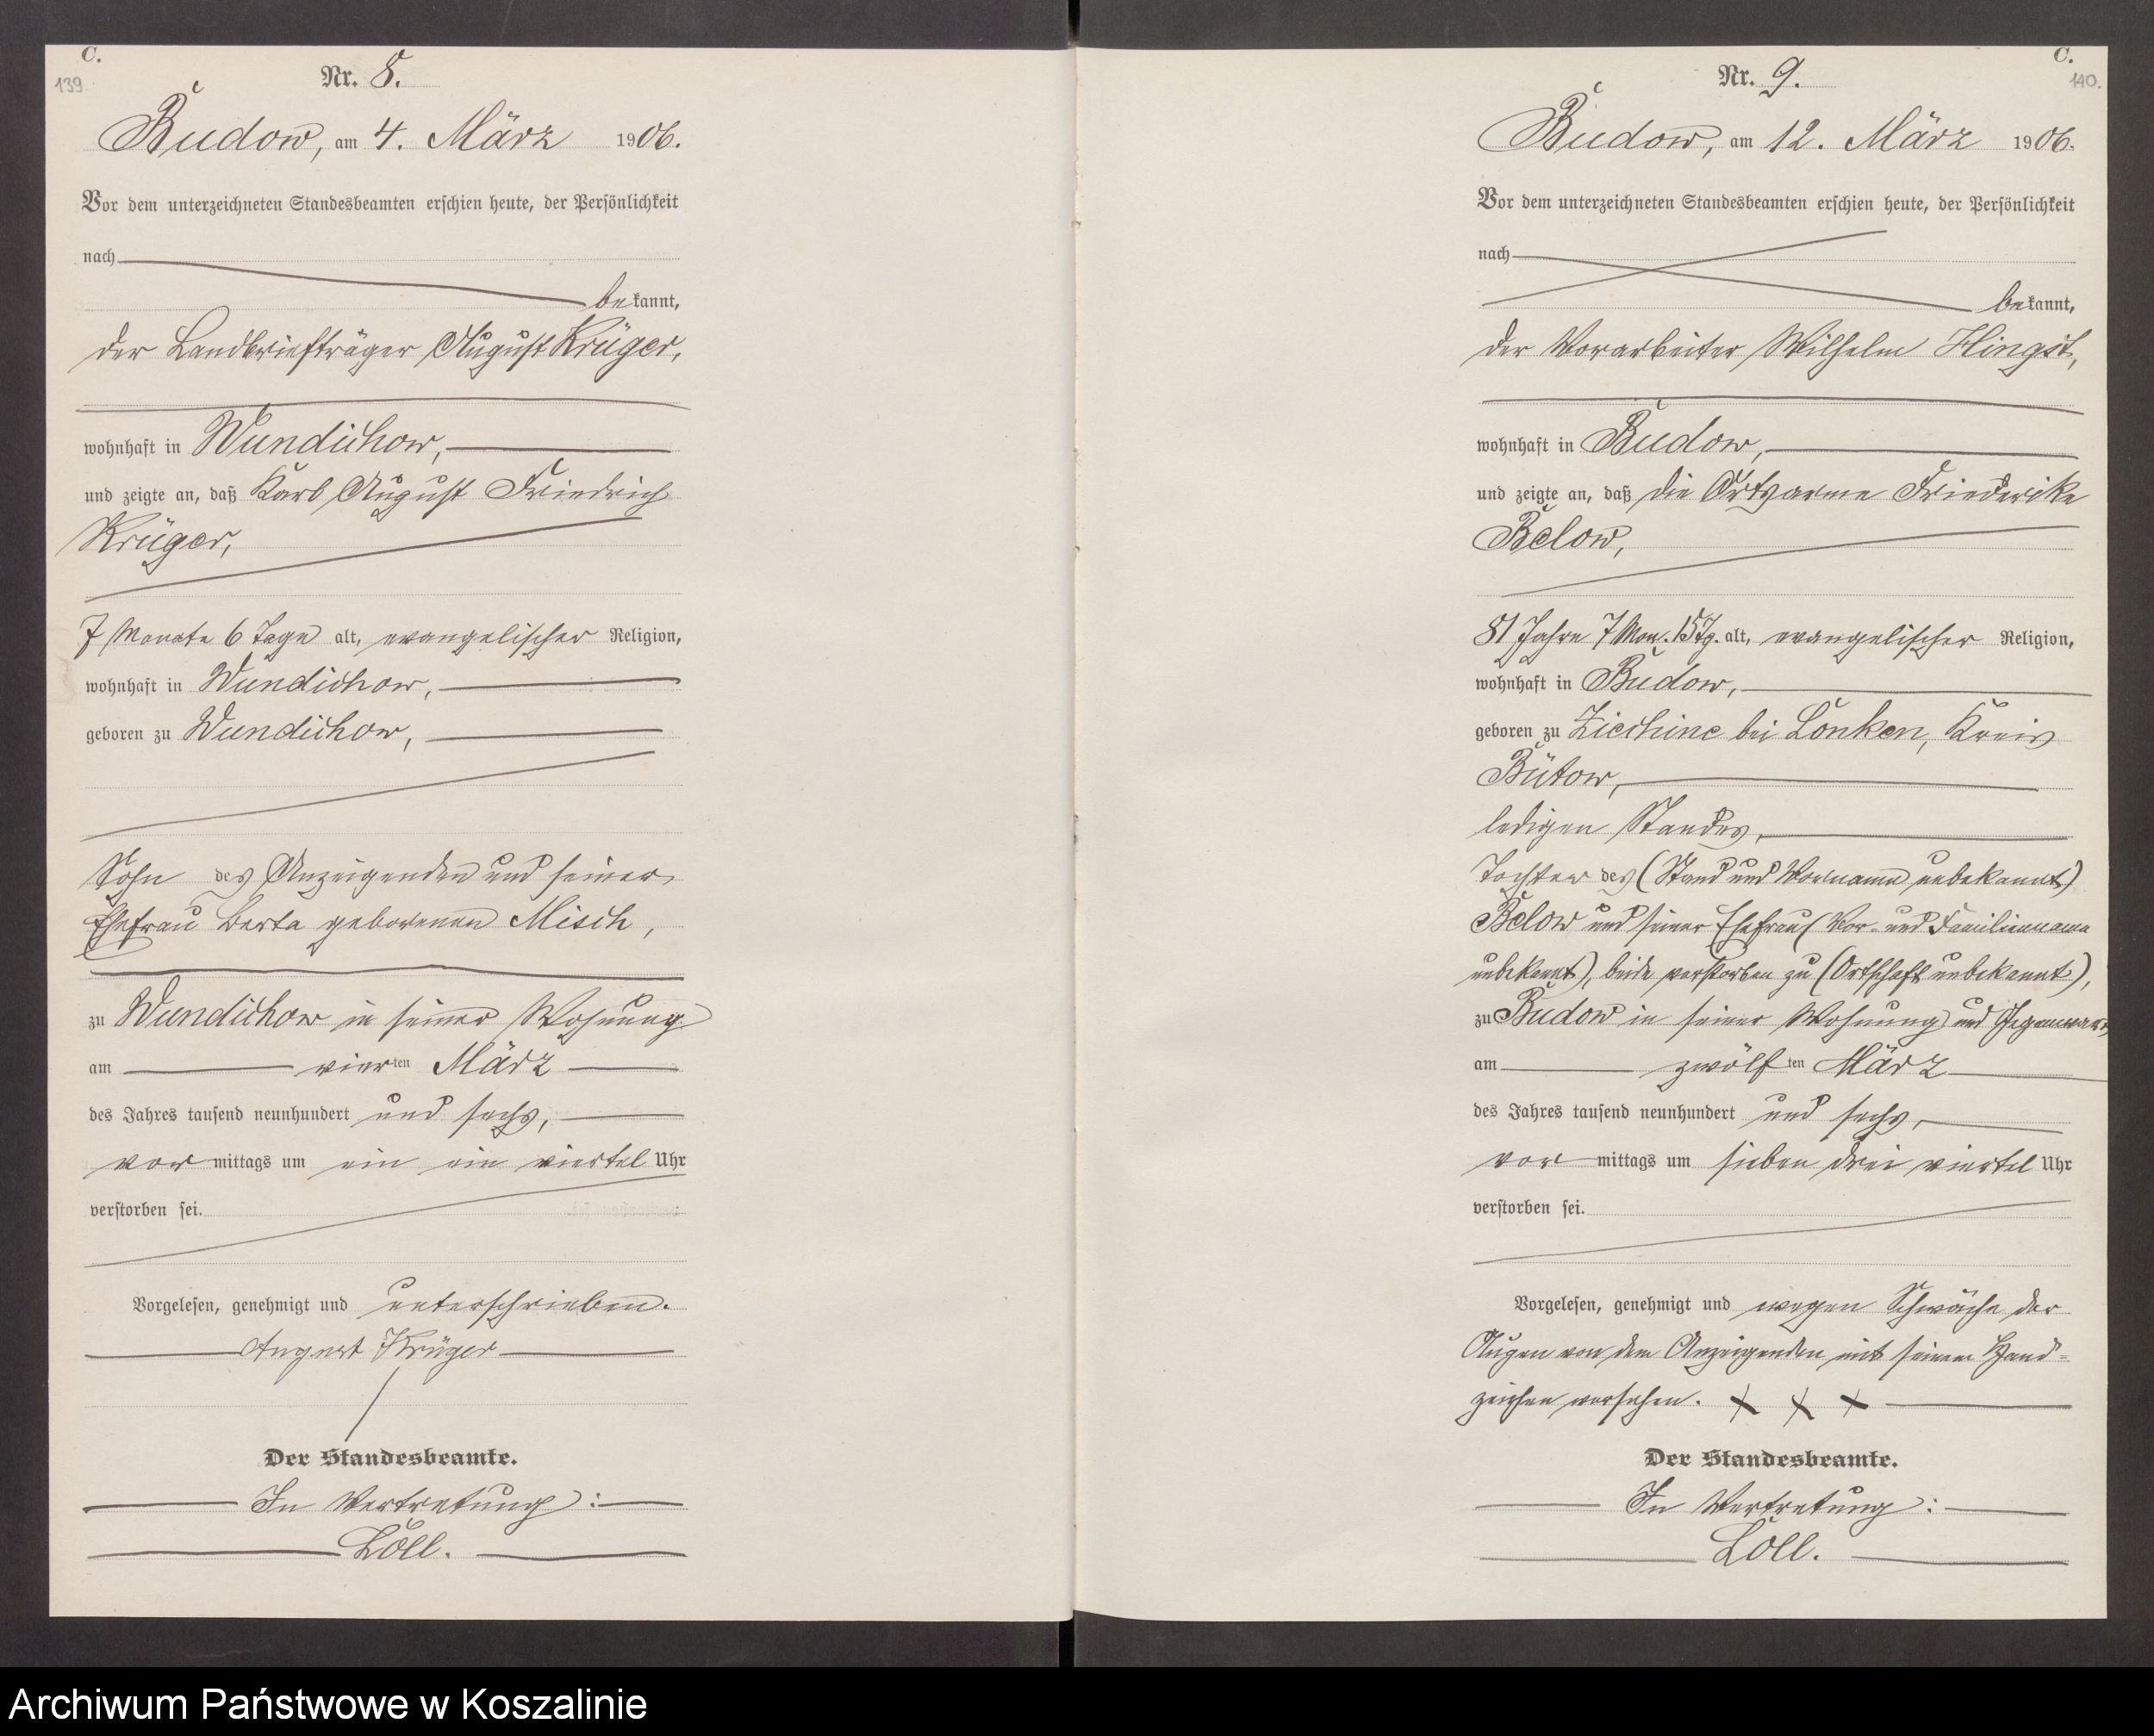 C.
139
Nr. 8.
Budow, am 4. März 1906.
Vor dem unterzeichneten Standesbeamten erschien heute, der Persönlichkeit
nach
bekannt,
der Landbriefträger August Krüger,
wohnhaft in Wundichow,
und zeigte an, daß Karl August Friedrich
Krüger,
7 Monate 6 Tage alt, evangelischer Religion,
wohnhaft in Wundichow,
geboren zu Wundichow,
Sohn des Anzeigenden und seiner
Ehefrau Berta geborenen Misch,
zu Wundichow in seiner Wohnung
am vierten März
des Jahres tausend neunhundert und sechs,
vormittags um ein ein viertel Uhr
verstorben sei.
Vorgelesen, genehmigt und unterschrieben.
August Krüger
Der Standesbeamte.
In Vertretung:
Löll.
C.
140.
Nr. 9.
Budow, am 12. März 1906.
Vor dem unterzeichneten Standesbeamten erschien heute, der Persönlichkeit
nach
bekannt,
der Vorarbeiter Wilhelm Hingst,
wohnhaft in Budow,
und zeigte an, daß die Ortsarme Friederike
Below,
81 Jahre 7 Mon. 15 Tg. alt, evangelischer Religion,
wohnhaft in Budow,
geboren zu Ziechine bei Lonken, Kreis
Bütow,
ledigen Standes,
Tochter des (Stand und Vorname unbekannt)
Below und seiner Ehefrau (Vor- und Familienname
unbekannt), beide verstorben zu (Ortschaft unbekannt),
zu Budow in seiner Wohnung und Gegenwart
am zwölften März
des Jahres tausend neunhundert und sechs,
vormittags um sieben drei viertel Uhr
verstorben sei.
Vorgelesen, genehmigt und wegen Schwäche der
Augen von dem Anzeigenden mit seinem Hand-
zeichen versehen. X X X
Der Standesbeamte.
In Vertretung:
Löll.
Archiwum Państwowe w Koszalinie